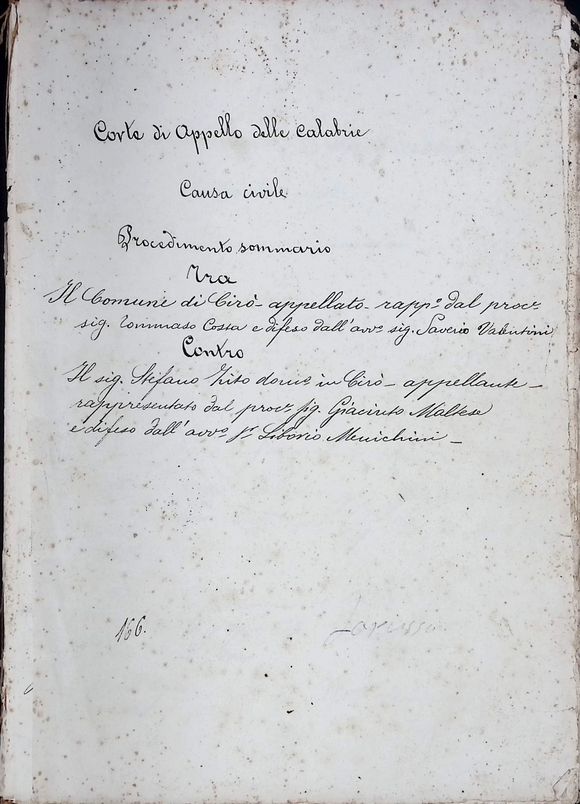 Corte di Appello delle Calabrie
Causa civile
Procedimento sommario
Tra
Il Comune di Cirò - appellato - rapp.º dal proc.r
sig. Tommaso Cossa e difeso dall'avv.º sig. Saverio Valentini
Contro
Il sig. Stefano Zito dom.º in Cirò - appellante -
rappresentato dal proc.r sig. Giacinto Maltese
e difeso dall'avv.º s.r Liborio Menichini -
166.